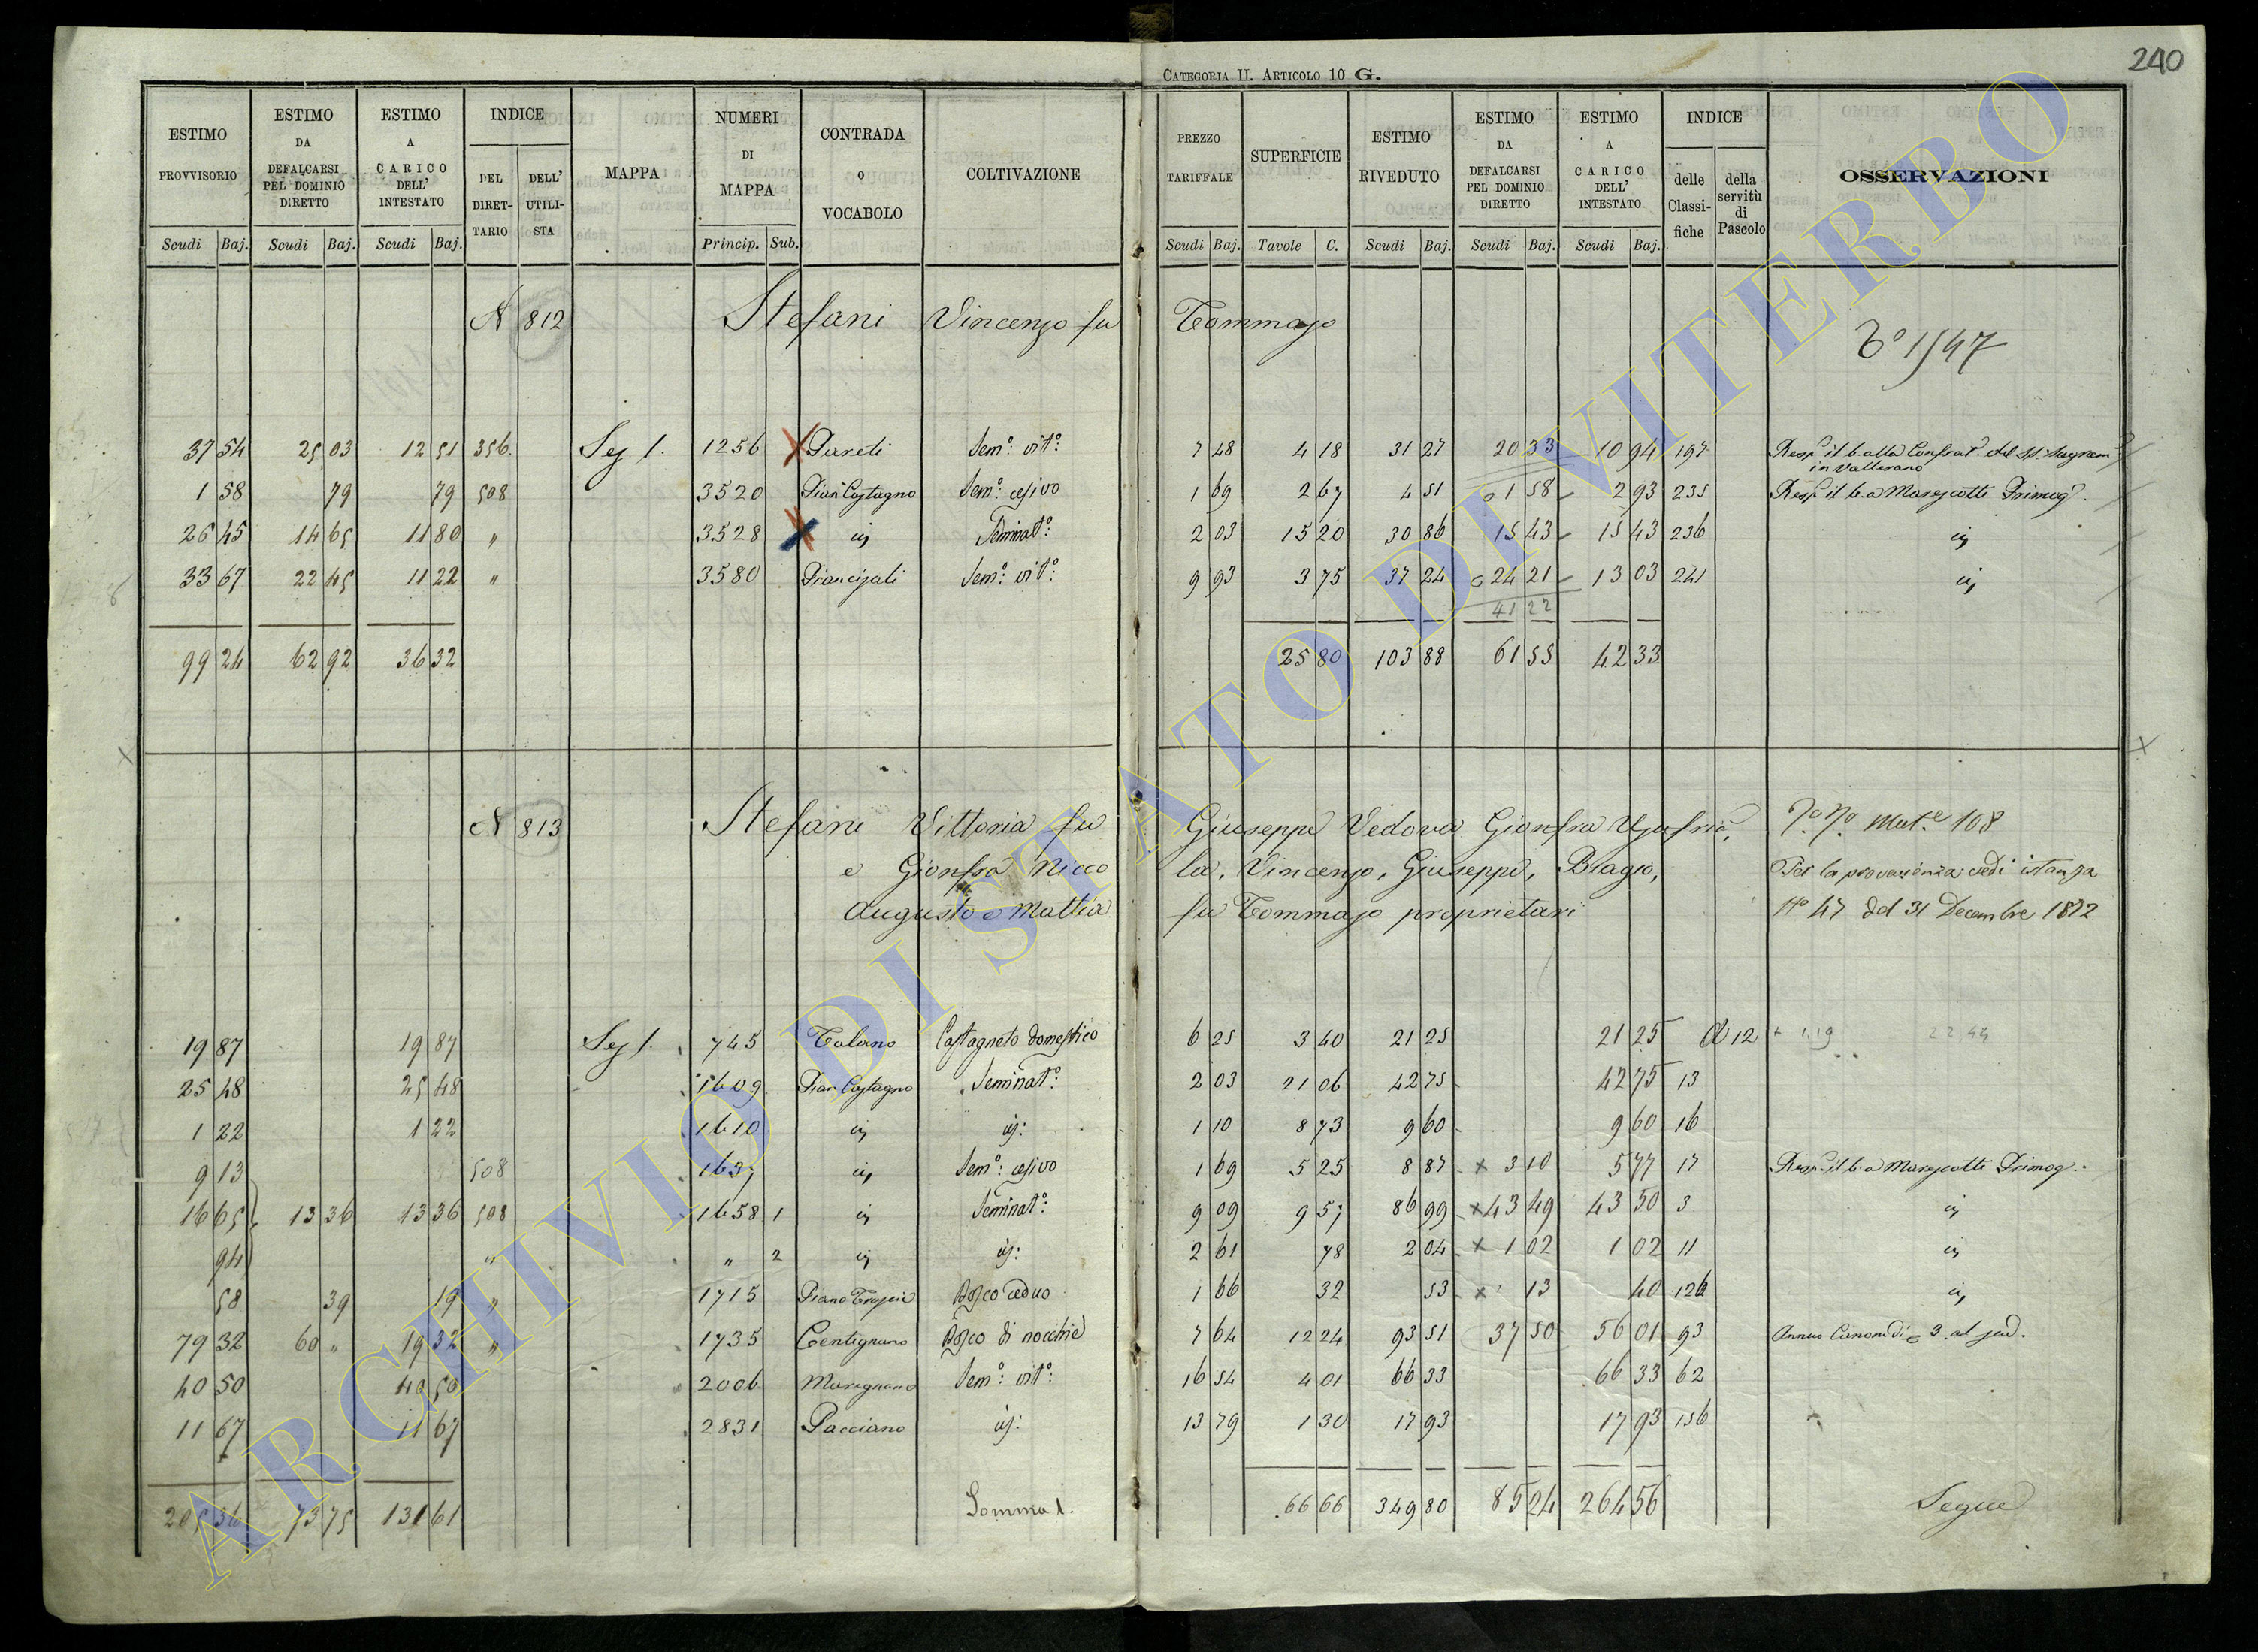 240
CATEGORIA II. ARTICOLO 10 G.
ESTIMO PROVVISORIO Scudi Baj.
ESTIMO DA DEFALCARSI PEL DOMINIO DIRETTO Scudi Baj.
ESTIMO A CARICO DELL' INTESTATO Scudi Baj.
INDICE DEL DIRET-TARIO DELL' UTILI-STA
MAPPA
NUMERI DI MAPPA Princip. Sub.
CONTRADA O VOCABOLO
COLTIVAZIONE
PREZZO TARIFFALE Scudi Baj.
SUPERFICIE Tavole C.
ESTIMO RIVEDUTO Scudi Baj.
ESTIMO DA DEFALCARSI PEL DOMINIO DIRETTO Scudi Baj.
ESTIMO A CARICO DELL' INTESTATO Scudi Baj.
INDICE delle Classi-fiche della servitù di Pascolo
OSSERVAZIONI
N 812 Stefani Vincenzo fu Tommaso
37 54 25 03 12 51 356 Sez 1. 1256 Pareti Sem.º vit.º 7 48 4 18 31 27 20 33 10 94 197
in Vallerano
1 58 79 79 508 3520 Pian Castagno Sem.º cesivo 1 69 2 67 4 51 1 58 2 93 235 Resp. il b. a Marescotti Primog.
26 45 14 65 11 80 " 3528 id Seminat.º 2 03 15 20 30 86 15 43 15 43 236 id
33 67 22 45 11 22 " 3580 Sem.º vit.º 9 93 3 75 37 24 24 21 13 03 241 id
41 22
99 24 62 92 36 32 25 80 103 88 61 55 42 33
N 813 Stefani Vittoria fu Giuseppe Vedova Gionfra
e Gionfra Nicco la, Vincenzo, Giuseppe, Biagio, Per la provenienza vedi istanza
Augusto e Mattia fu Tommaso proprietari Nº 47 del 31 Decembre 1872
19 87 19 87 Sez 1. 745 Talano Castagneto domestico 6 25 3 40 21 25 21 25 12 + 1.19 22 44
25 48 25 48 1609 Pian Castagno Seminat.º 2 03 21 06 42 75 42 75 13
1 22 1 22 1610 id id: 1 10 8 73 9 60 9 60 16
9 13 508 1637 id Sem.º cesivo 1 69 5 25 8 87 x 3 10 5 77 17 Resp. il b. a Marescotti Primog.
16 65 13 36 13 36 508 1658 1 id Seminat.º 9 09 9 57 86 99 x 43 49 43 50 3 id
94 " " 2 id id: 2 61 78 2 04 x 1 02 1 02 11 id
58 39 19 " 1715 Piano Bosco ceduo 1 66 32 53 x 13 40 126 id
79 32 60 " 19 32 " 1735 Centignano Bosco di nocchie 7 64 12 24 93 51 37 50 56 01 93
40 50 40 50 2006 Marignano Sem.º vit.º 16 54 4 01 66 33 66 33 62
11 67 11 67 2831 Pacciano id: 13 79 1 30 17 93 17 93 156
205 36 73 75 131 61 Somma 1. 66 66 349 80 85 24 264 56 Segue
ARCHIVIO DI STATO DI VITERBO